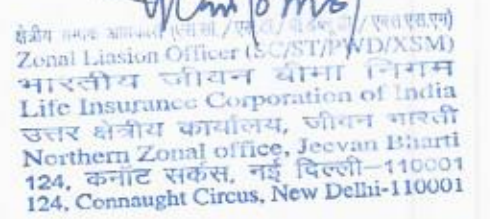 क्षेत्रीय सम्पर्क अधिकारी (एस सी / एस टी / पी डब्ल्यू डी / एक्स एस एम)
Zonal Liasion Officer (SC/ST/PWD/XSM)
भारतीय जीवन बीमा निगम
Life Insurance Corporation of India
उत्तर क्षेत्रीय कार्यालय, जीवन भारती
Northern Zonal office, Jeevan Bharti
124, कनॉट सर्कस, नई दिल्ली-110001
124, Connaught Circus, New Delhi-110001